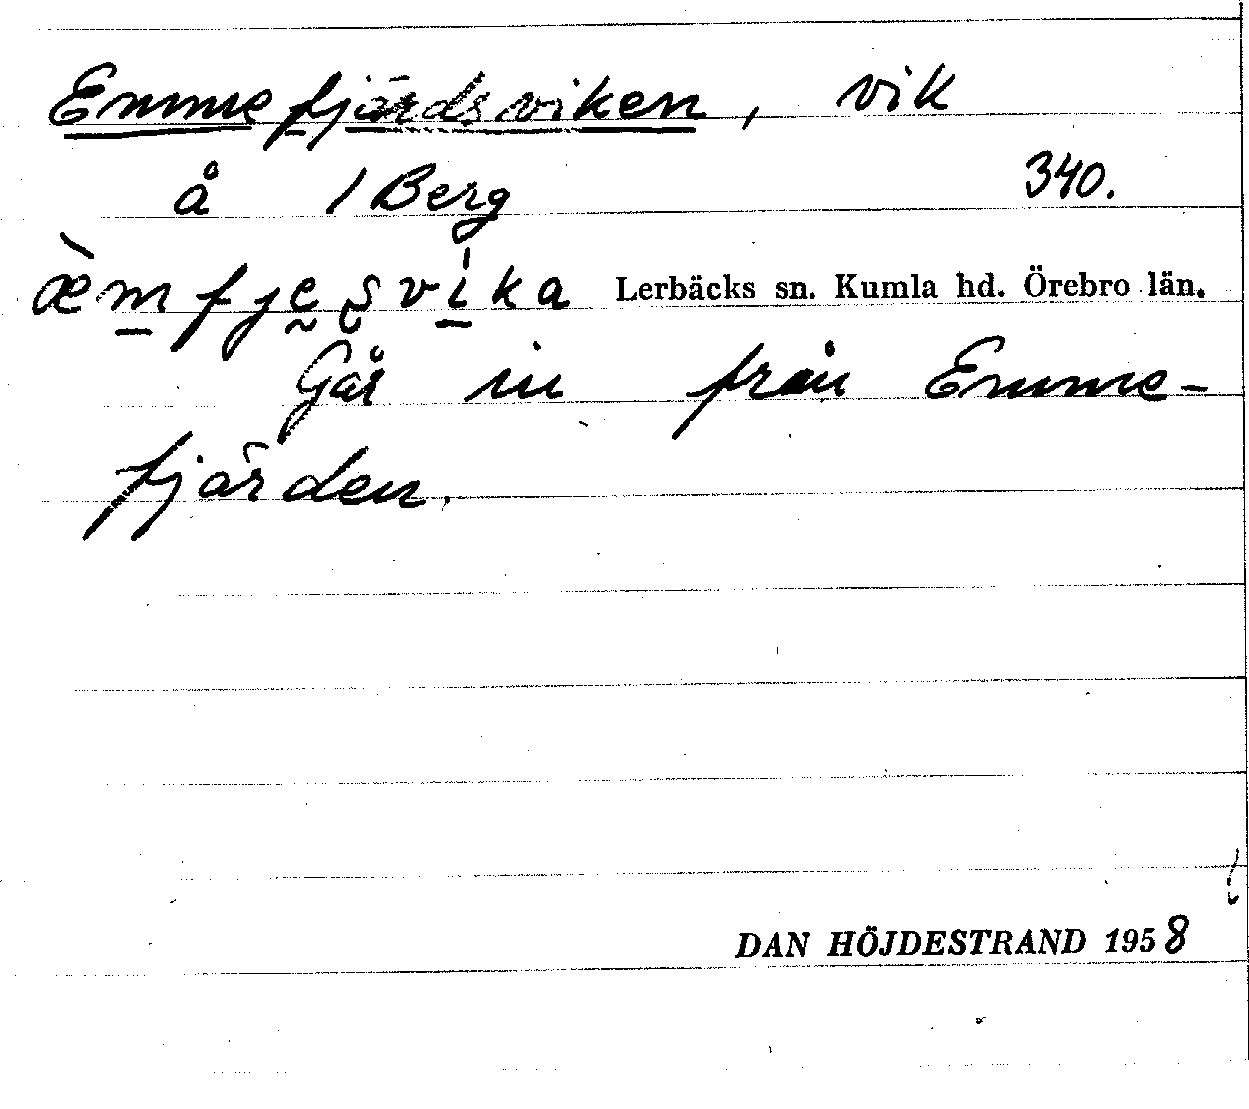 Emmefjärdsviken, vik
å 1 Berg 340.
æ̀m̲fjḛʂvi̲ka Lerbäcks sn. Kumla hd. Örebro län.
Går in från Emme-
fjärden.
DAN HÖJDESTRAND 1958